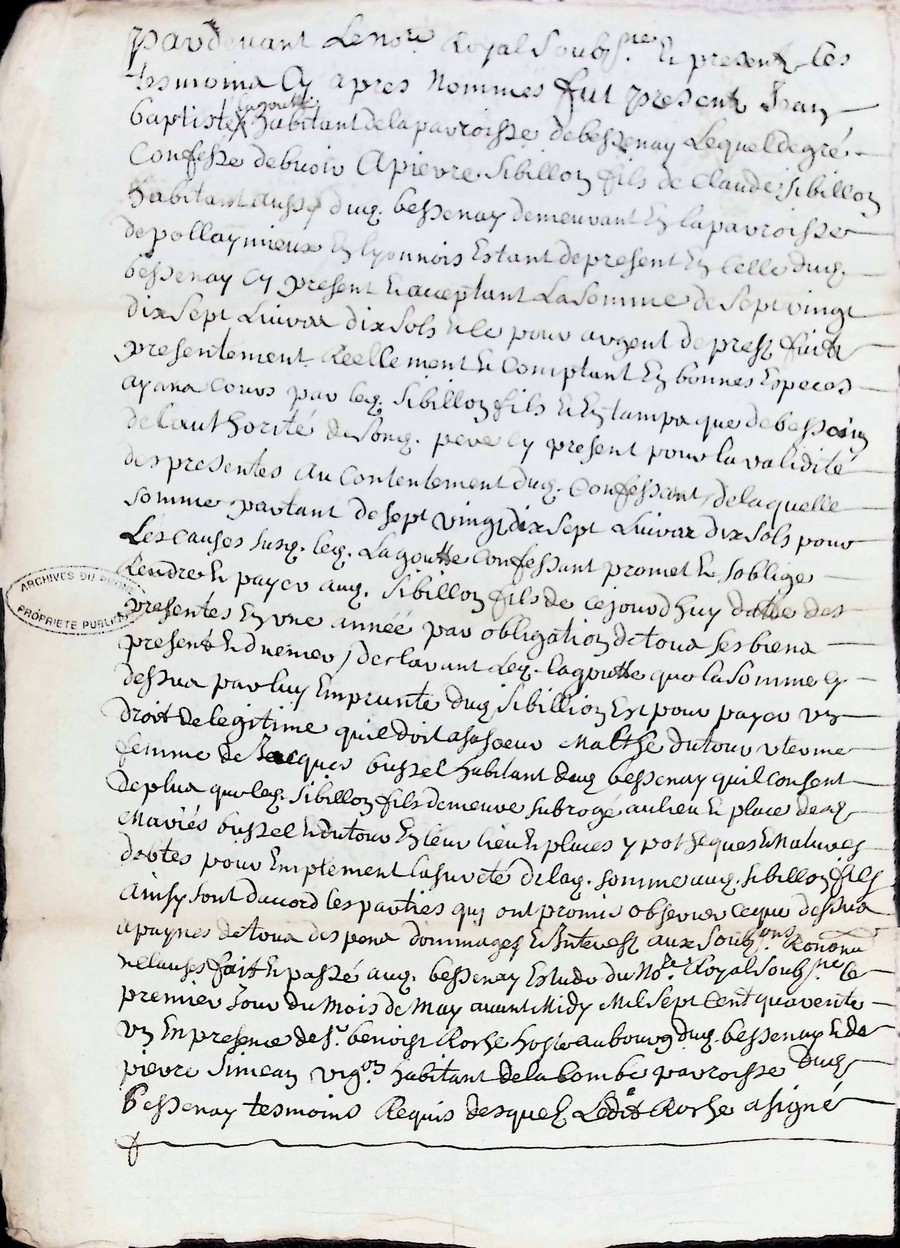 Pardevant Le no.re Royal Soub.sne Et present les
tesmoins Cy apres Nommes fut present Jean
lagoutte
baptiste habitant de la parroisse de bessenay Lequel de gré
Confesse debvoir A pierre Sibillon fils de Claude Sibillon
habitant aussy dud. bessenay demeurant En la parroisse
de pollaymieux En lyonnois Estant de present En Celle dud.
bessenay Cy present Et acceptant La Somme de Sept vingt
dix Sept Livres dix Sols Et Ce pour argent de prest fait
presentement Reellement Et Comptant En bonnes Especes
ayans Cours par led. Sibillon fils Et En tampt que de bessoin
de lauthorité de Sond. pere Cy present pour la validité
des presentes Au Contentement dud. Confessant, de laquelle
Somme partant de sept vingt dix Sept Livres dix Sols pour
Les Causes susd. led. Lagoutte Confessant promet Et soblige
Rendre Et payer aud. Sibillon fils de ce jourdhuy datte des
presentes En une année par obligation de tous ses biens
present Et advenier, declarant Led. lagoutte que la Somme Cy
dessus par luy Emprunte dud Sibillion Est pour payer un
Droit de legitime quil doit a sa soeur Malthe dutour uterine
femme de Jacques bussel habitant dud bessenay quil consent
de plus que led. Sibillon fils demeure subrogé au lieu Et place desd
Mariés bussel Et dutour En leur lieu Et places ypotheques Et Natures
debtes pour Emplement La sureté de lad. Somme aud. Sibillon fils
Ainsy sont daccord les parties qui ont promis observer ce que dessus
a paynes de tous despens dommages Et Interest aux Soub.ons Renon.ns
Et Clauses fait Et passé aud. bessenay Estude du No.re Royal Soub.ne Le
premier Jour du Mois de May avant Midy Mil Sept Cent quarente
un En presence de S.r benoist Roche hoste au bourg dud. bessenay Et de
pierre Simean vig.on habitant de la Combe parroisse dud
bessenay tesmoins Requis desquels Ledit Roche a signé
ARCHIVES DU RHONE
PROPRIETE PUBLIQUE